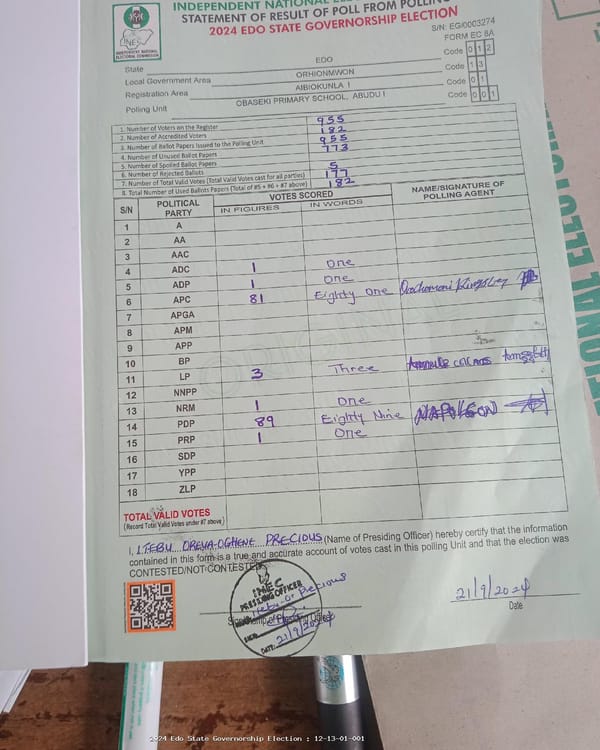 INDEPENDENT NATIONAL
STATEMENT OF RESULT OF POLL FROM POLLING
2024 EDO STATE GOVERNORSHIP ELECTION
S/N: EG/0003274
FORM EC 8A
INEC
INDEPENDENT NATIONAL
ELECTORAL COMMISSION
State EDO Code 0 1 2
Local Government Area ORHIONMWON Code 1 3
Registration Area AIBIOKUNLA I Code 0 1
Polling Unit OBASEKI PRIMARY SCHOOL, ABUDU I Code 0 0 1
1. Number of Voters on the Register 955
2. Number of Accredited Voters 182
3. Number of Ballot Papers Issued to the Polling Unit 955
4. Number of Unused Ballot Papers 773
5. Number of Spoiled Ballot Papers
6. Number of Rejected Ballots 5
7. Number of Total Valid Votes (Total Valid Votes cast for all parties) 177
8. Total Number of Used Ballots Papers (Total of #5 + #6 + #7 above) 182
S/N POLITICAL PARTY VOTES SCORED NAME/SIGNATURE OF POLLING AGENT
IN FIGURES IN WORDS
1 A
2 AA
3 AAC
4 ADC 1 One
5 ADP 1 One
6 APC 81 Eighty One Kingsley
7 APGA
8 APM
9 APP
10 BP
11 LP 3 Three
12 NNPP
13 NRM 1 One
14 PDP 89 Eighty Nine NAPOLEON
15 PRP 1 One
16 SDP
17 YPP
18 ZLP
TOTAL VALID VOTES
(Record Total Valid Votes under #7 above)
I, ITEBU OREVA-OGHENE PRECIOUS (Name of Presiding Officer) hereby certify that the information
contained in this form is a true and accurate account of votes cast in this polling Unit and that the election was
CONTESTED/NOT CONTESTED.
INEC
PRESIDING OFFICER
Itebu Or Precious
21/9/2024
Date
DATE: 21/9/2024
2024 Edo State Governorship Election : 12-13-01-001